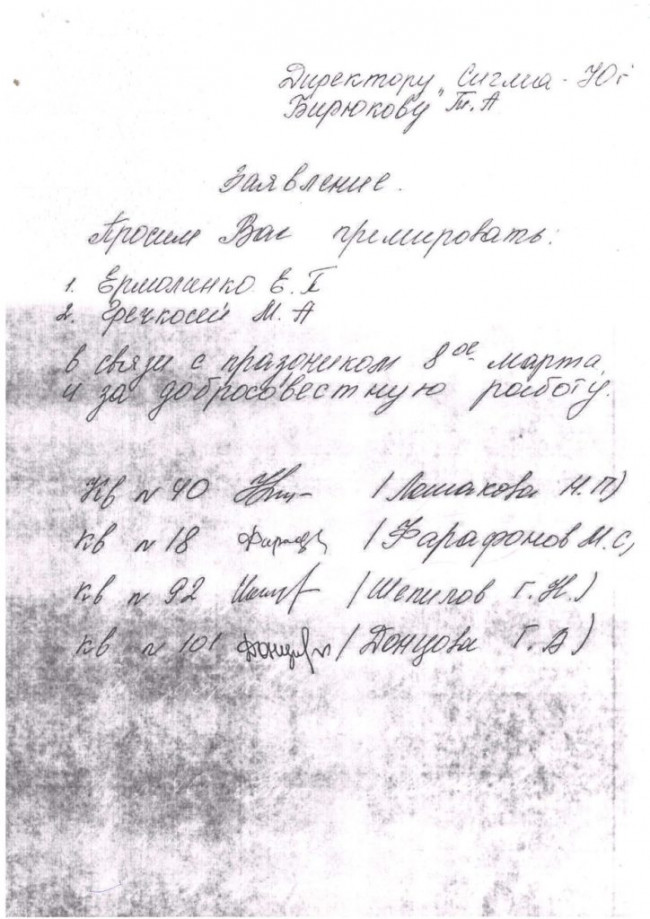 Директору „Сигма-Юг
Бирюкову Т.А
Заявление.
Просим Вас премировать:
1. Ермоленко Е. П
2. Гречкосей М. А
в связи с праздником 8ое марта
и за добросовестную работу.
Кв №40 / Лошакова Н.П)
кв №18 / Фарафонов М.С,
кв №92 / Шепилов Г.Н.)
кв №101 / Донцова Г.А)